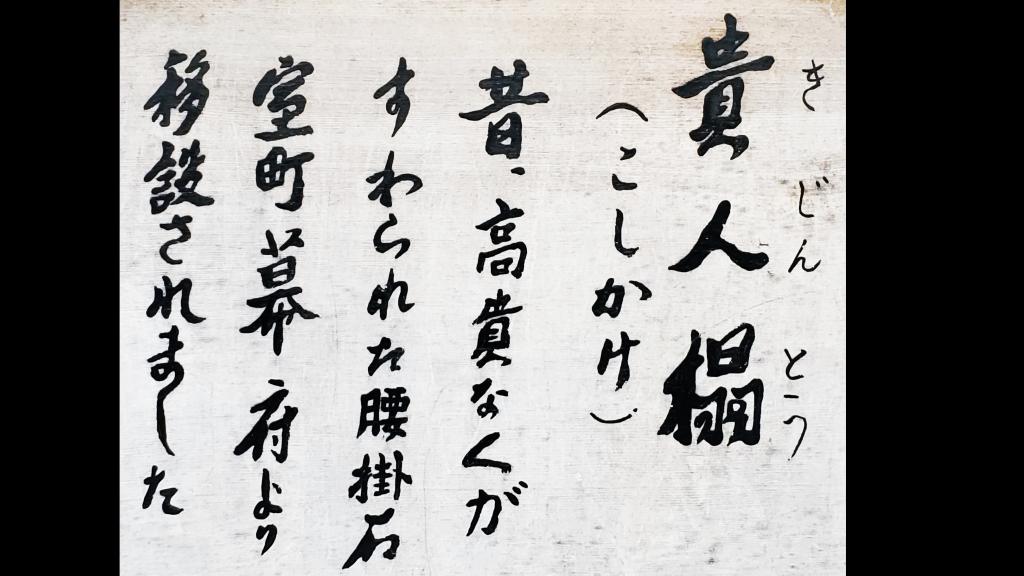 きじんとう
貴人榻
(こしかけ)
昔、高貴な人が
すわられた腰掛石
室町幕府より
移設されました